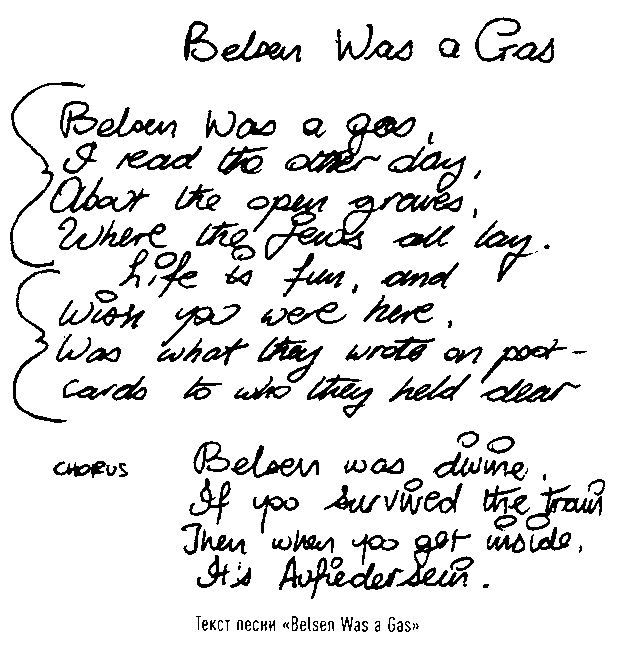 Belsen Was a Gas
Belsen Was a gas,
I read the other day,
About the open graves,
Where the Jews all lay.
Life is fun, and
Wish you were here,
Was what they wrote on post-
cards to who they held dear
CHORUS Belsen was divine,
If you survived the train
Then when you get inside,
It's Aufiedersein.
Текст песни «Belsen Was a Gas»